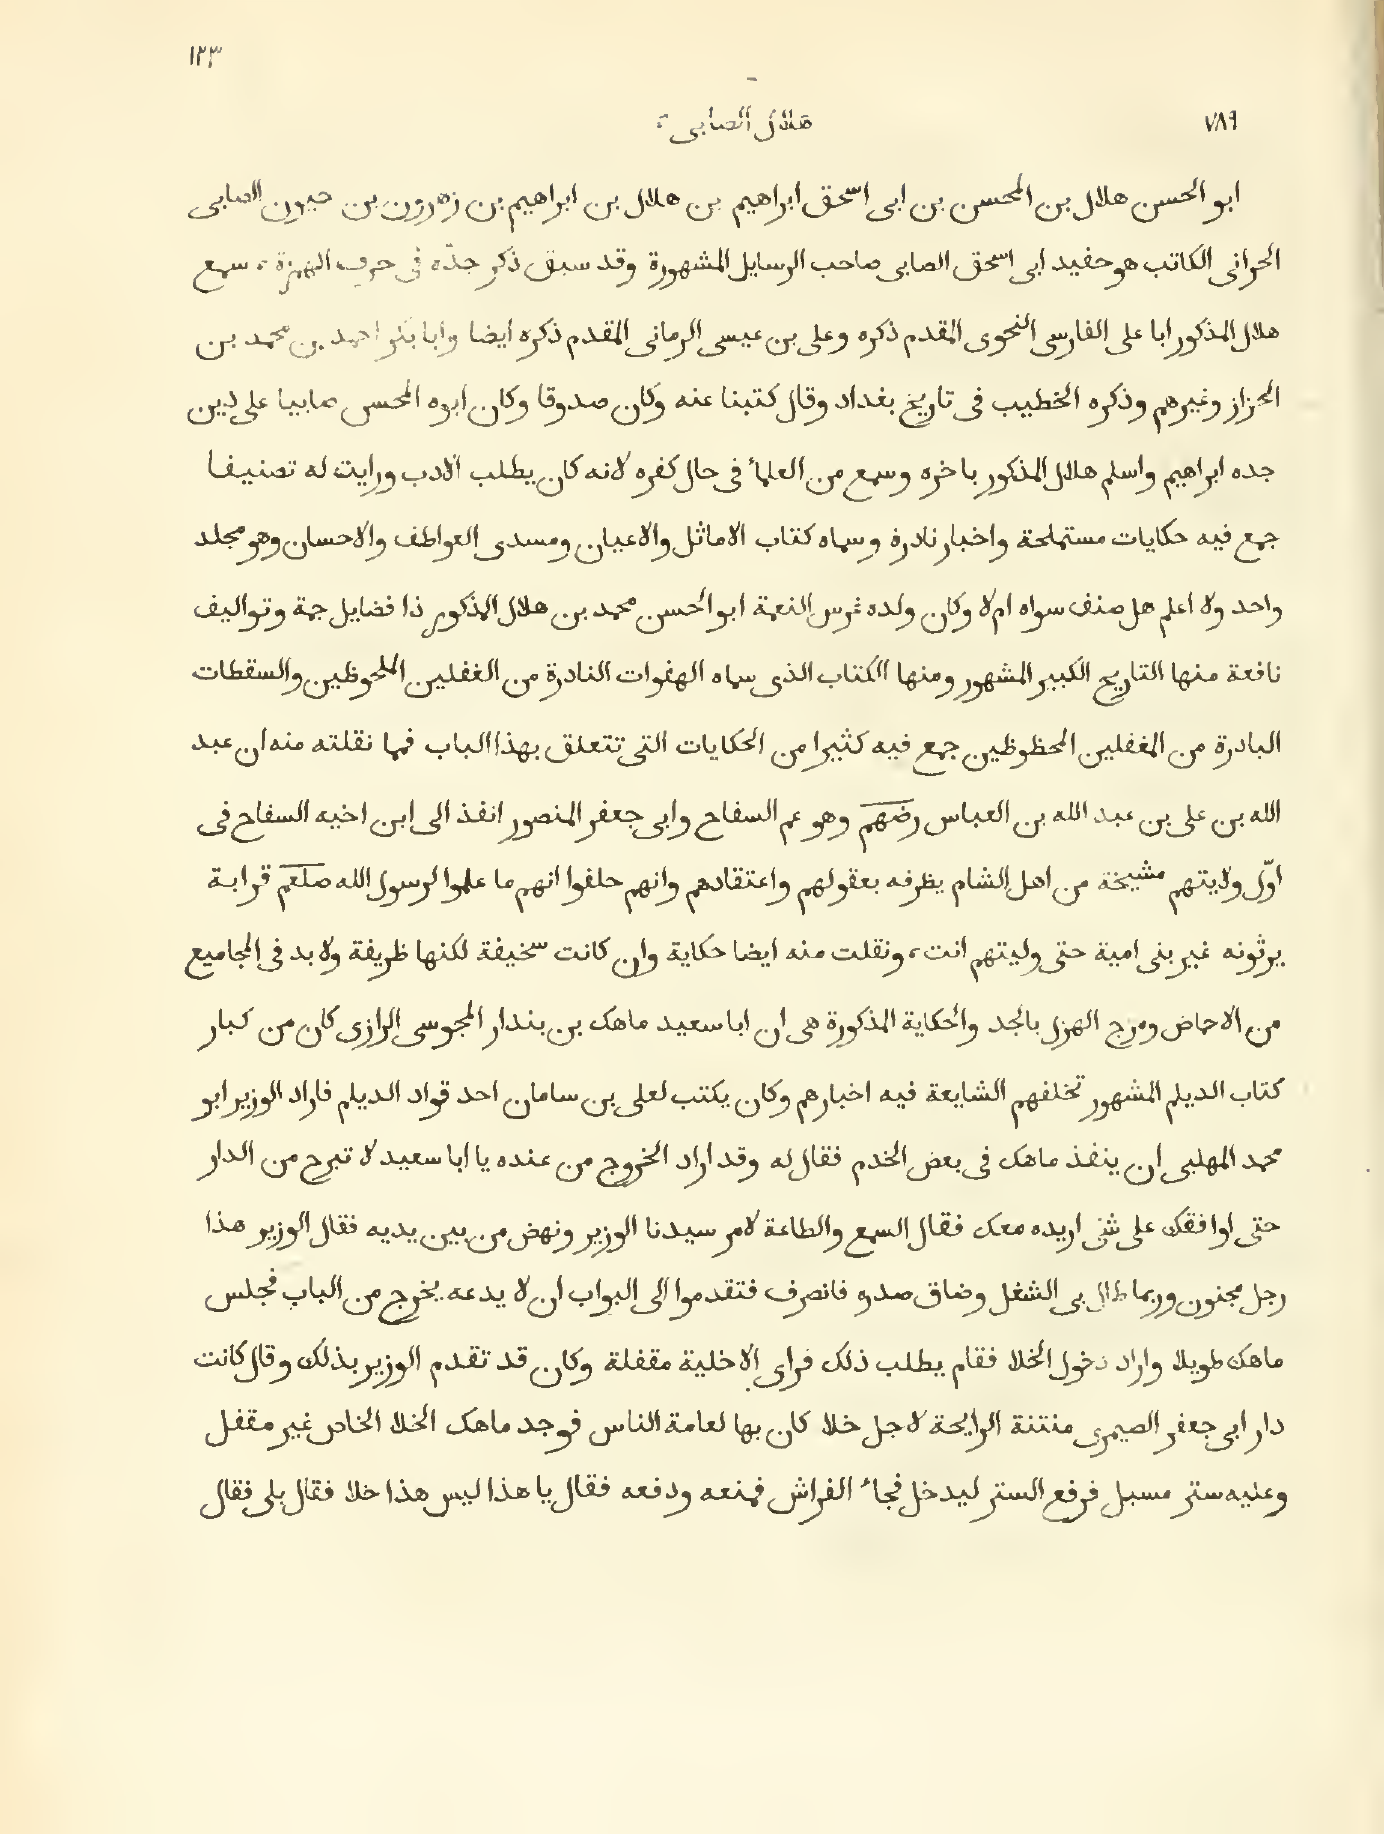 ١٢٣
٧٨٩
هلال الصابى
ابو الحسن هلال بن المحسن بن ابى اسحق ابراهيم بن هلال بن ابراهيم بن زهرون بن حيون الصابى
الحرانى الكاتب هو حفيد ابى اسحق الصابى صاحب الرسايل المشهورة وقد سبق ذكر جدّه فى حرف الهمزة ، سمع
هلال المذكور ابا على الفارسى النحوى المقدم ذكره وعلى بن عيسى الرمانى المقدم ذكره ايضا وابا بكر احمد بن محمد بن
الخزاز وغيرهم وذكره الخطيب فى تاريخ بغداد وقال كتبنا عنه وكان صدوقا وكان ابوه المحسن صابيا على دين
جده ابراهيم واسلم هلال المذكور باخره وسمع من العلمأ فى حال كفره لانه كان يطلب الادب ورايت له تصنيفا
جمع فيه حكايات مستملحة واخبار نادرة وسماه كتاب الاماثل والاعيان ومسدى العواطف والاحسان وهو مجلد
واحد ولا اعلم هل صنف سواه ام لا وكان ولده غرس النعمة ابو الحسن محمد بن هلال المذكور ذا فضايل جمة وتواليف
نافعة منها التاريخ الكبير المشهور ومنها الكتاب الذى سماه الهفوات النادرة من الغفلين الملحوظين والسقطات
البادرة من المغفلين المحظوظين جمع فيه كثيرا من الحكايات التى تتعلق بهذا الباب فمما نقلته منه ان عبد
الله بن على بن عبد الله بن العباس رضهم وهو عم السفاح وابى جعفر المنصور انفذ الى ابن اخيه السفاح فى
اوّل ولايتهم مشيخة من اهل الشام يظرفه بعقولهم واعتقادهم وانهم حلفوا انهم ما علموا لرسول الله صلعم قرابة
يرثونه غير بنى امية حتى وليتهم انت ، ونقلت منه ايضا حكاية وان كانت سخيفة لكنها ظريفة ولا بد فى المجاميع
من الاحماض ومزج الهزل بالجد والحكاية المذكورة هى ان ابا سعيد ماهك بن بندار المجوسى الرازى كان من كبار
كتاب الديلم المشهور تخلفهم الشايعة فيه اخبارهم وكان يكتب لعلى بن سامان احد قواد الديلم فاراد الوزير ابو
محمد المهلبى ان ينفذ ماهك فى بعض الخدم فقال له وقد اراد الخروج من عنده يا ابا سعيد لا تبرح من الدار
حتى اوافقك على شى اريده معك فقال السمع والطاعة لامر سيدنا الوزير ونهض من بين يديه فقال الوزير هذا
رجل مجنون وربما طال بى الشغل وضاق صدره فانصرف فتقدموا الى البواب ان لا يدعه يخرج من الباب فجلس
ماهك طويلا واراد دخول الخلا فقام يطلب ذلك فراى الاخلية مقفلة وكان قد تقدم الوزير بذلك وقال كانت
دار ابى جعفر الصيمرى منتنة الرايحة لاجل خلا كان بها لعامة الناس فوجد ماهك الخلا الخاص غير مقفل
وعليه ستر مسبل فرفع الستر ليدخل فجأ الفراش فمنعه ودفعه فقال يا هذا ليس هذا خلا فقال بلى فقال